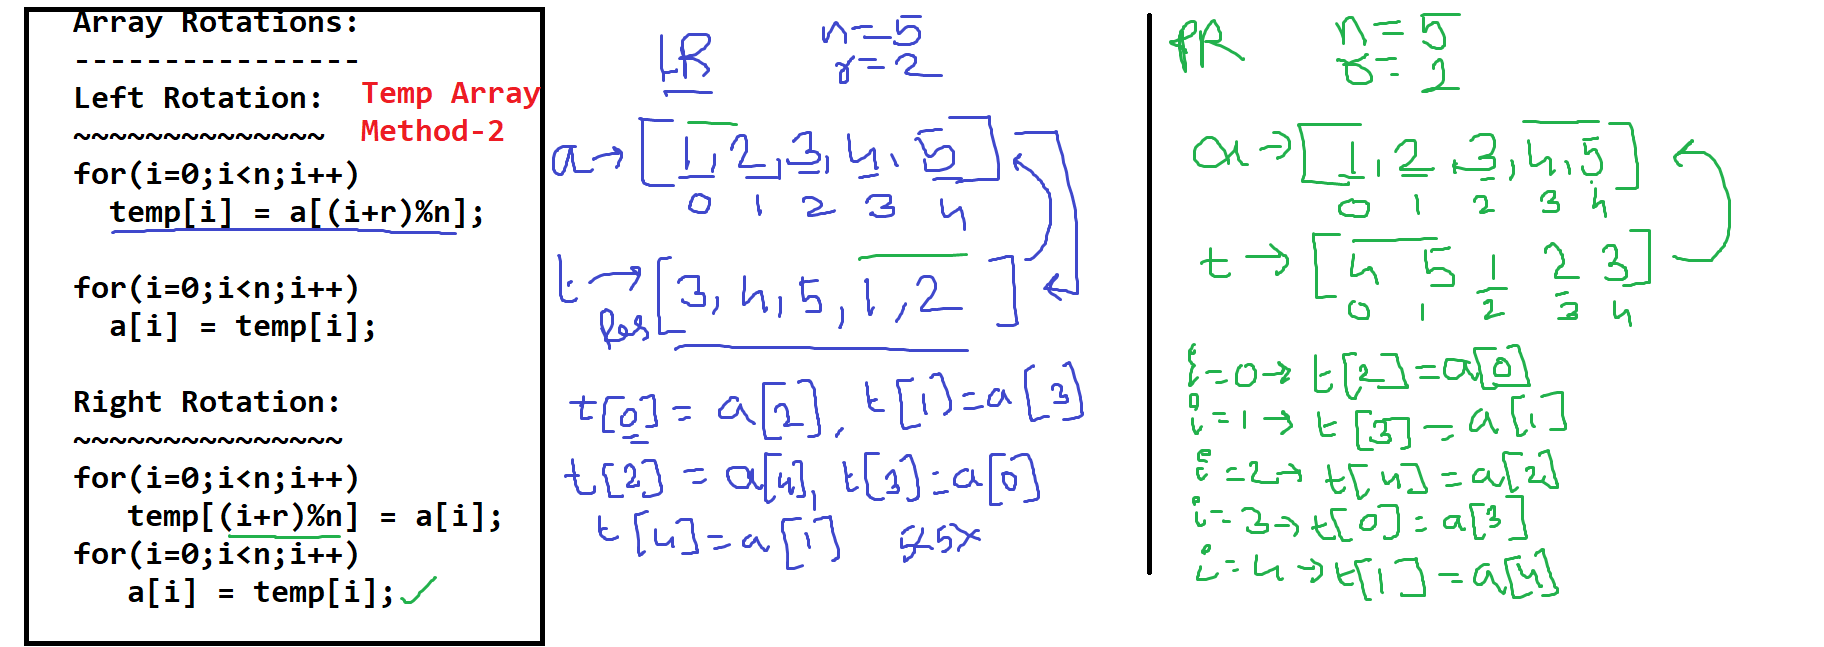 Array Rotations:
----------------
Left Rotation:
Temp Array
Method-2
~~~~~~~~~~~~~~
for(i=0;i<n;i++)
temp[i] = a[(i+r)%n];
for(i=0;i<n;i++)
a[i] = temp[i];
Right Rotation:
~~~~~~~~~~~~~~~
for(i=0;i<n;i++)
temp[(i+r)%n] = a[i];
for(i=0;i<n;i++)
a[i] = temp[i]; ✓
LR
n=5
r=2
a→ [1, 2, 3, 4, 5]
0 1 2 3 4
t→ [3, 4, 5, 1, 2]
Res
t[0] = a[2], t[1]=a[3]
t[2] = a[4], t[3]=a[0]
t[4]=a[1]
RR
n=5
r=2
a→ [1, 2, 3, 4, 5]
0 1 2 3 4
t→ [4 5 1 2 3]
0 1 2 3 4
i=0→ t[2]=a[0]
i=1→ t[3]=a[1]
i=2→ t[4]=a[2]
i=3→ t[0]=a[3]
i=4→ t[1]=a[4]